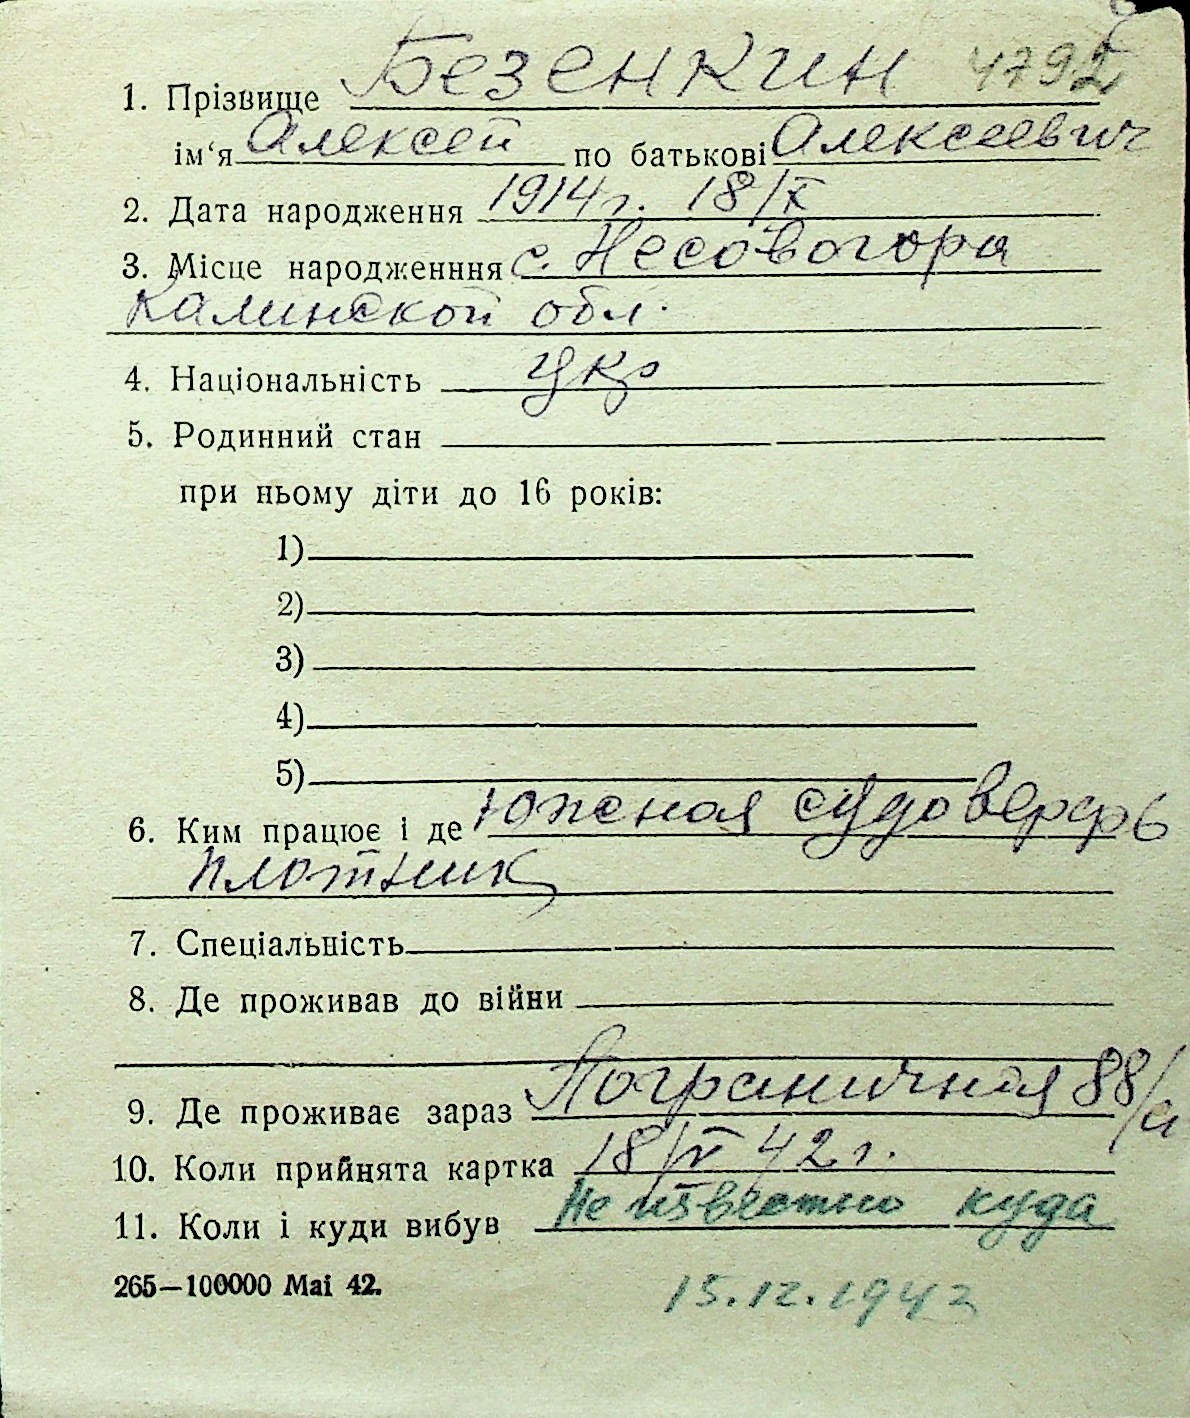 1. Прізвище Безенкин 4792
ім'я Алексей по батькові Алексеевич
2. Дата народження 1914 г. 18/X
3. Місце народженння с. Несовогора
Калинской обл.
4. Національність Укр
5. Родинний стан
при ньому діти до 16 років:
1)
2)
3)
4)
5)
6. Ким працює і де Южная судоверфь
плотник
7. Спеціальність
8. Де проживав до війни
9. Де проживає зараз Пограничная 88/а
10. Коли прийнята картка 18/V 42 г.
11. Коли і куди вибув Не известно куда
265—100000 Mai 42.
15.12.1942